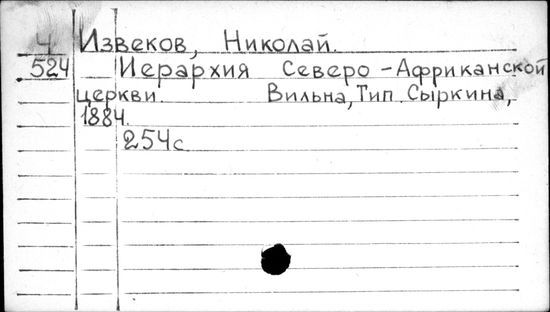 4 Извеков, Николай.
524 Иерархия Северо-Африканской
церкви. Вильна, Тип. Сыркина,
1884.
254с